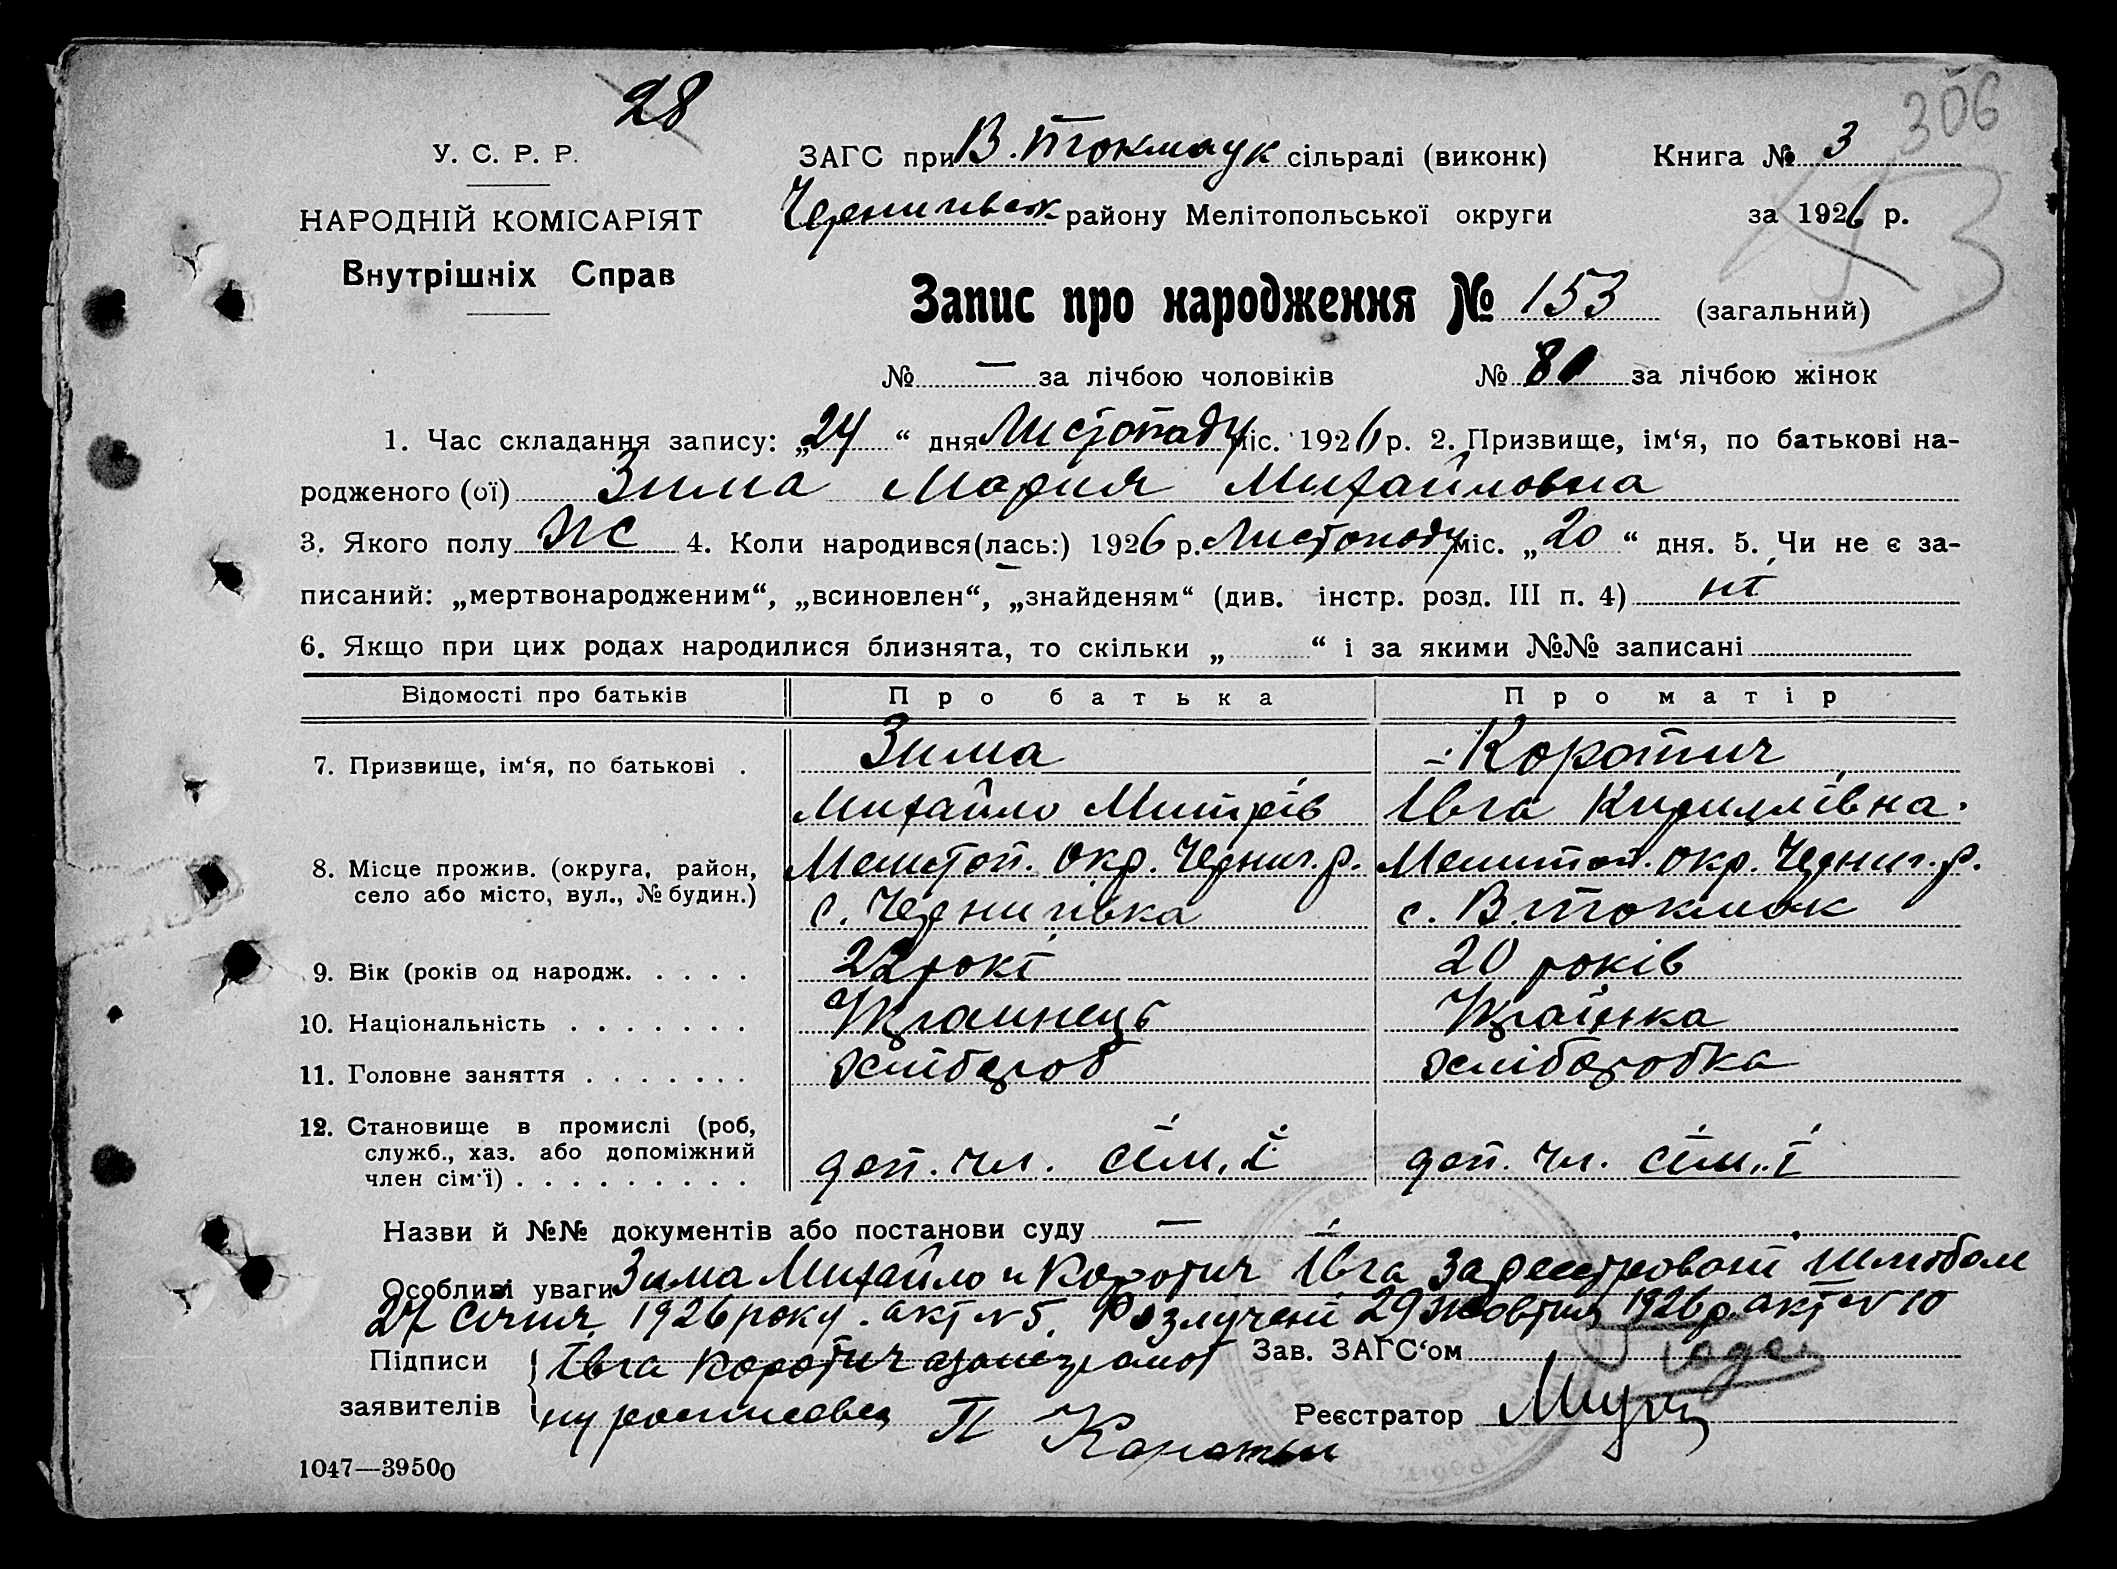 28
306
У. С. Р. Р.
НАРОДНІЙ КОМІСАРІЯТ
Внутрішніх Справ
ЗАГС при В. Токмаук сільраді (виконк) Книга № 3
Чернигівськ району Мелітопольської округи за 1926 р.
53
Запис про народження № 153 (загальний)
№ — за лічбою чоловіків № 80 за лічбою жінок
1. Час складання запису: „24“ дня Листопаду міс. 1926 р. 2. Призвище, ім‘я, по батькові на-
родженого (ої) Зима Мария Михайловна
3. Якого полу ж 4. Коли народився(лась:) 1926 р. Листопаду міс. „20“ дня. 5. Чи не є за-
писаний: „мертвонародженим“, „всиновлен“, „знайденям“ (див. інстр. розд. III п. 4) ні
6. Якщо при цих родах народилися близнята, то скільки „ “ і за якими №№ записані
Відомості про батьків Про батька Про матір
7. Призвище, ім‘я, по батькові . Зима Коротич
Михайло Митрів Івга Кириллівна
8. Місце прожив. (округа, район, Мелітоп. окр. Черниг. р. Мелитоп. окр. Черниг. р.
село або місто, вул., № будин.) с. Чернигівка с. В. Токмак
9. Вік (років од народж. . . . . 22 рокі 20 років
10. Національність . . . . . . . Украинець Украінка
11. Головне заняття . . . . . . . хлібороб хліборобка
12. Становище в промислі (роб, служб., хаз. або допоміжний член сім‘ї) . . . . . . . . . доп. чл. сім.ї доп. чл. сім.ї
Назви й №№ документів або постанови суду —
Особливі уваги Зима Михайло и Коротич Івга Зареестровані шлюбом
27 січня 1926 року. акт N 5. Розлучені 29 жовтня 1926 р. акт N 10
Підписи Івга Коротич Зав. ЗАГС‘ом
заявителів П Коротыч Реєстратор
1047—39500